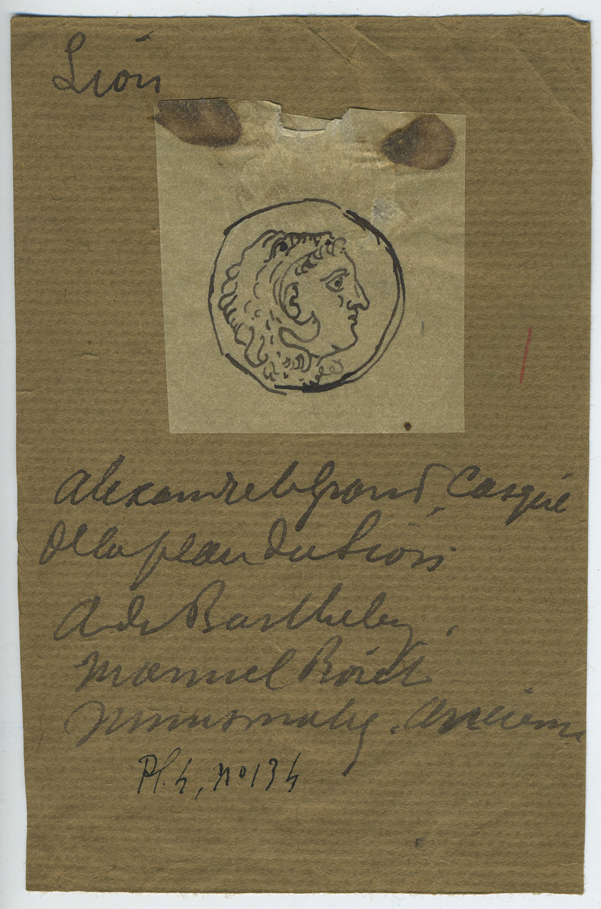 Lion
Alexandre le Grand, Casqué
de la peau du Lion
A de Barthelemy.
Manuel Roret
Numismatiq. Ancienne
Pl. 4, no 134